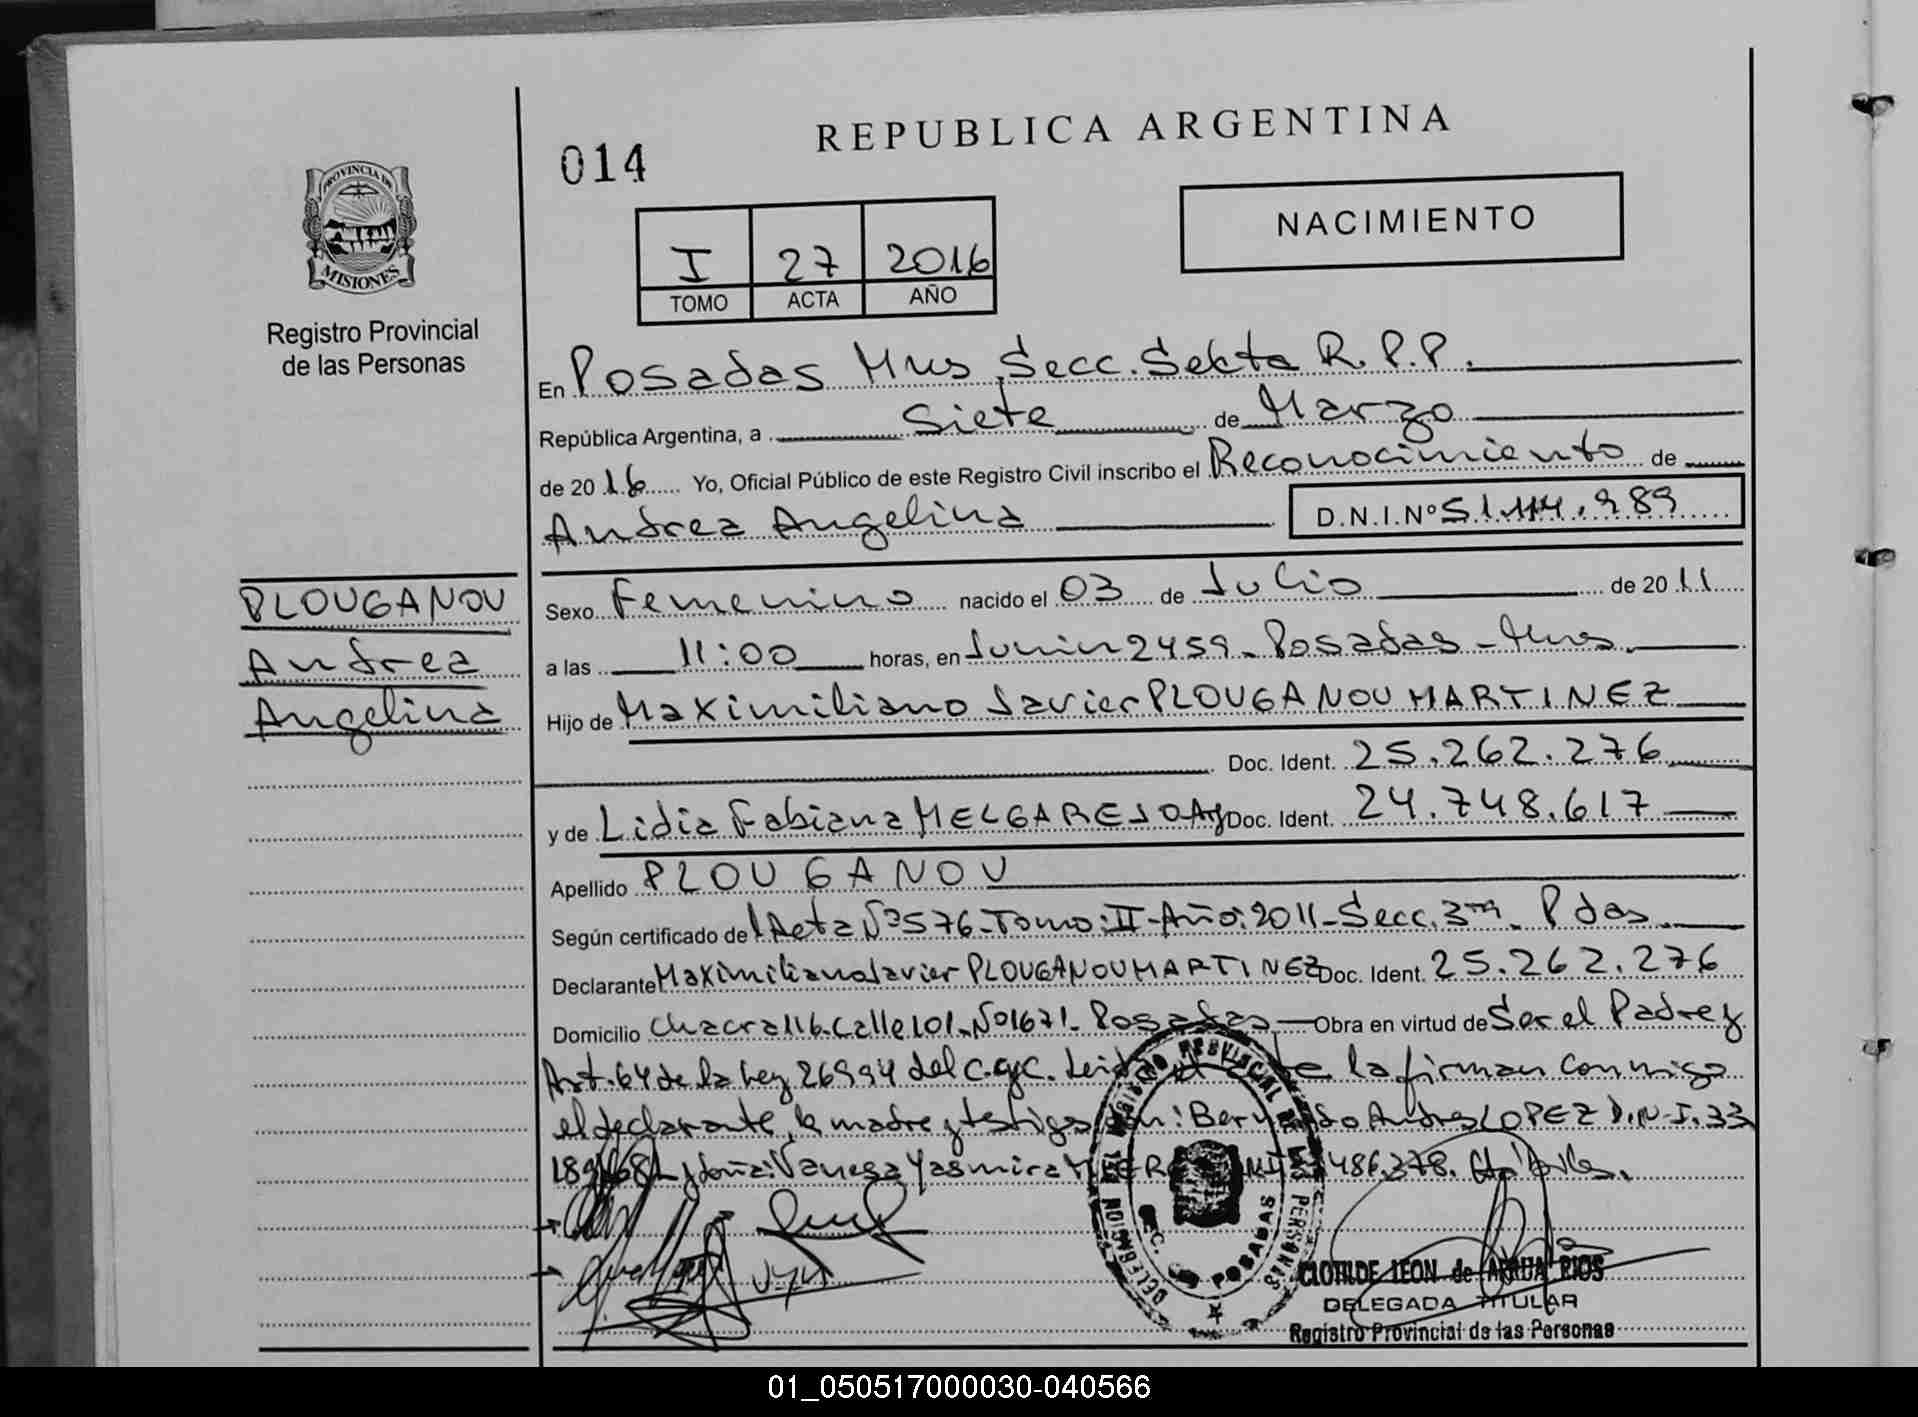 014
REPUBLICA ARGENTINA
NACIMIENTO
PROVINCIA DE
MISIONES
Registro Provincial
de las Personas
I 27 2016
TOMO ACTA AÑO
En Posadas Mns Secc. Sexta R.P.P.
República Argentina, a Siete de Marzo
de 2016 Yo, Oficial Público de este Registro Civil inscribo el Reconocimiento de
Andrea Angelina D.N.I.Nº 51.114.989
PLOUGANOU
Andrea
Angelina
Sexo Femenino nacido el 03 de Julio de 2011
a las 11:00 horas, en Junin 2459 - Posadas - Mns.
Hijo de Maximiliano Javier PLOUGANOU MARTINEZ
Doc. Ident. 25.262.276
y de Lidia Fabiana MELGAREJO Doc. Ident. 24.748.617
Apellido PLOUGANOU
Según certificado del Acta Nº 576 - Tomo: II - Año: 2011 - Secc. 3ra - Pdas.
Declarante Maximiliano Javier PLOUGANOU MARTINEZ Doc. Ident. 25.262.276
Domicilio Chacra 116. Calle 101. Nº 1671. Posadas Obra en virtud de Ser el Padre y
Art. 64 de la Ley 26994 del C.C. y C. Leida el acta la firman conmigo
el declarante, la madre y testigos Don: Bernardo Andres LOPEZ D.N.I. 33
y doña: Vanesa Yasmira 486.378.
REGISTRO PROVINCIAL DE LAS PERSONAS
DELEGACION
SECC.
POSADAS
CLOTILDE LEON de ARRUA RIOS
DELEGADA TITULAR
Registro Provincial de las Personas
01_050517000030-040566